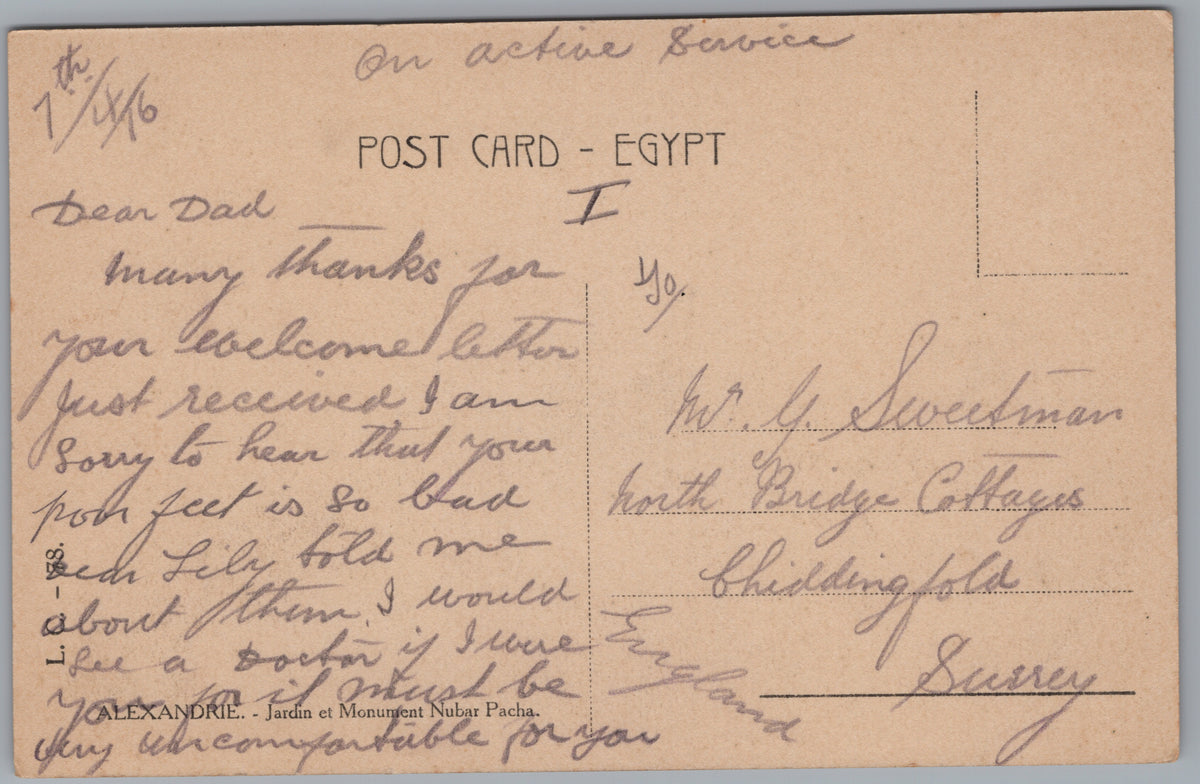 On active Service
7th/IX/16
POST CARD - EGYPT
I
Dear Dad
Many thanks for
your welcome letter
Just received I am
Sorry to hear that your
poor feet is so bad
Dear Lily told me
about them. I would
See a Doctor if I were
you for it must be
very uncomfortable for you
L. C. - 78.
ALEXANDRIE. - Jardin et Monument Nubar Pacha.
Mr. Y. Sweetman
North Bridge Cottages
Chiddingfold
Surrey
England